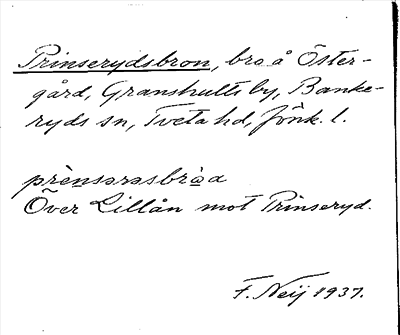 Prinserydsbron, bro å Öster-
gård, Granshults by, Banke-
ryds sn, Tveta hd, Jönk. l.
prènsərəsbròa
Över Lillån mot Prinseryd.
F. Neij 1937.